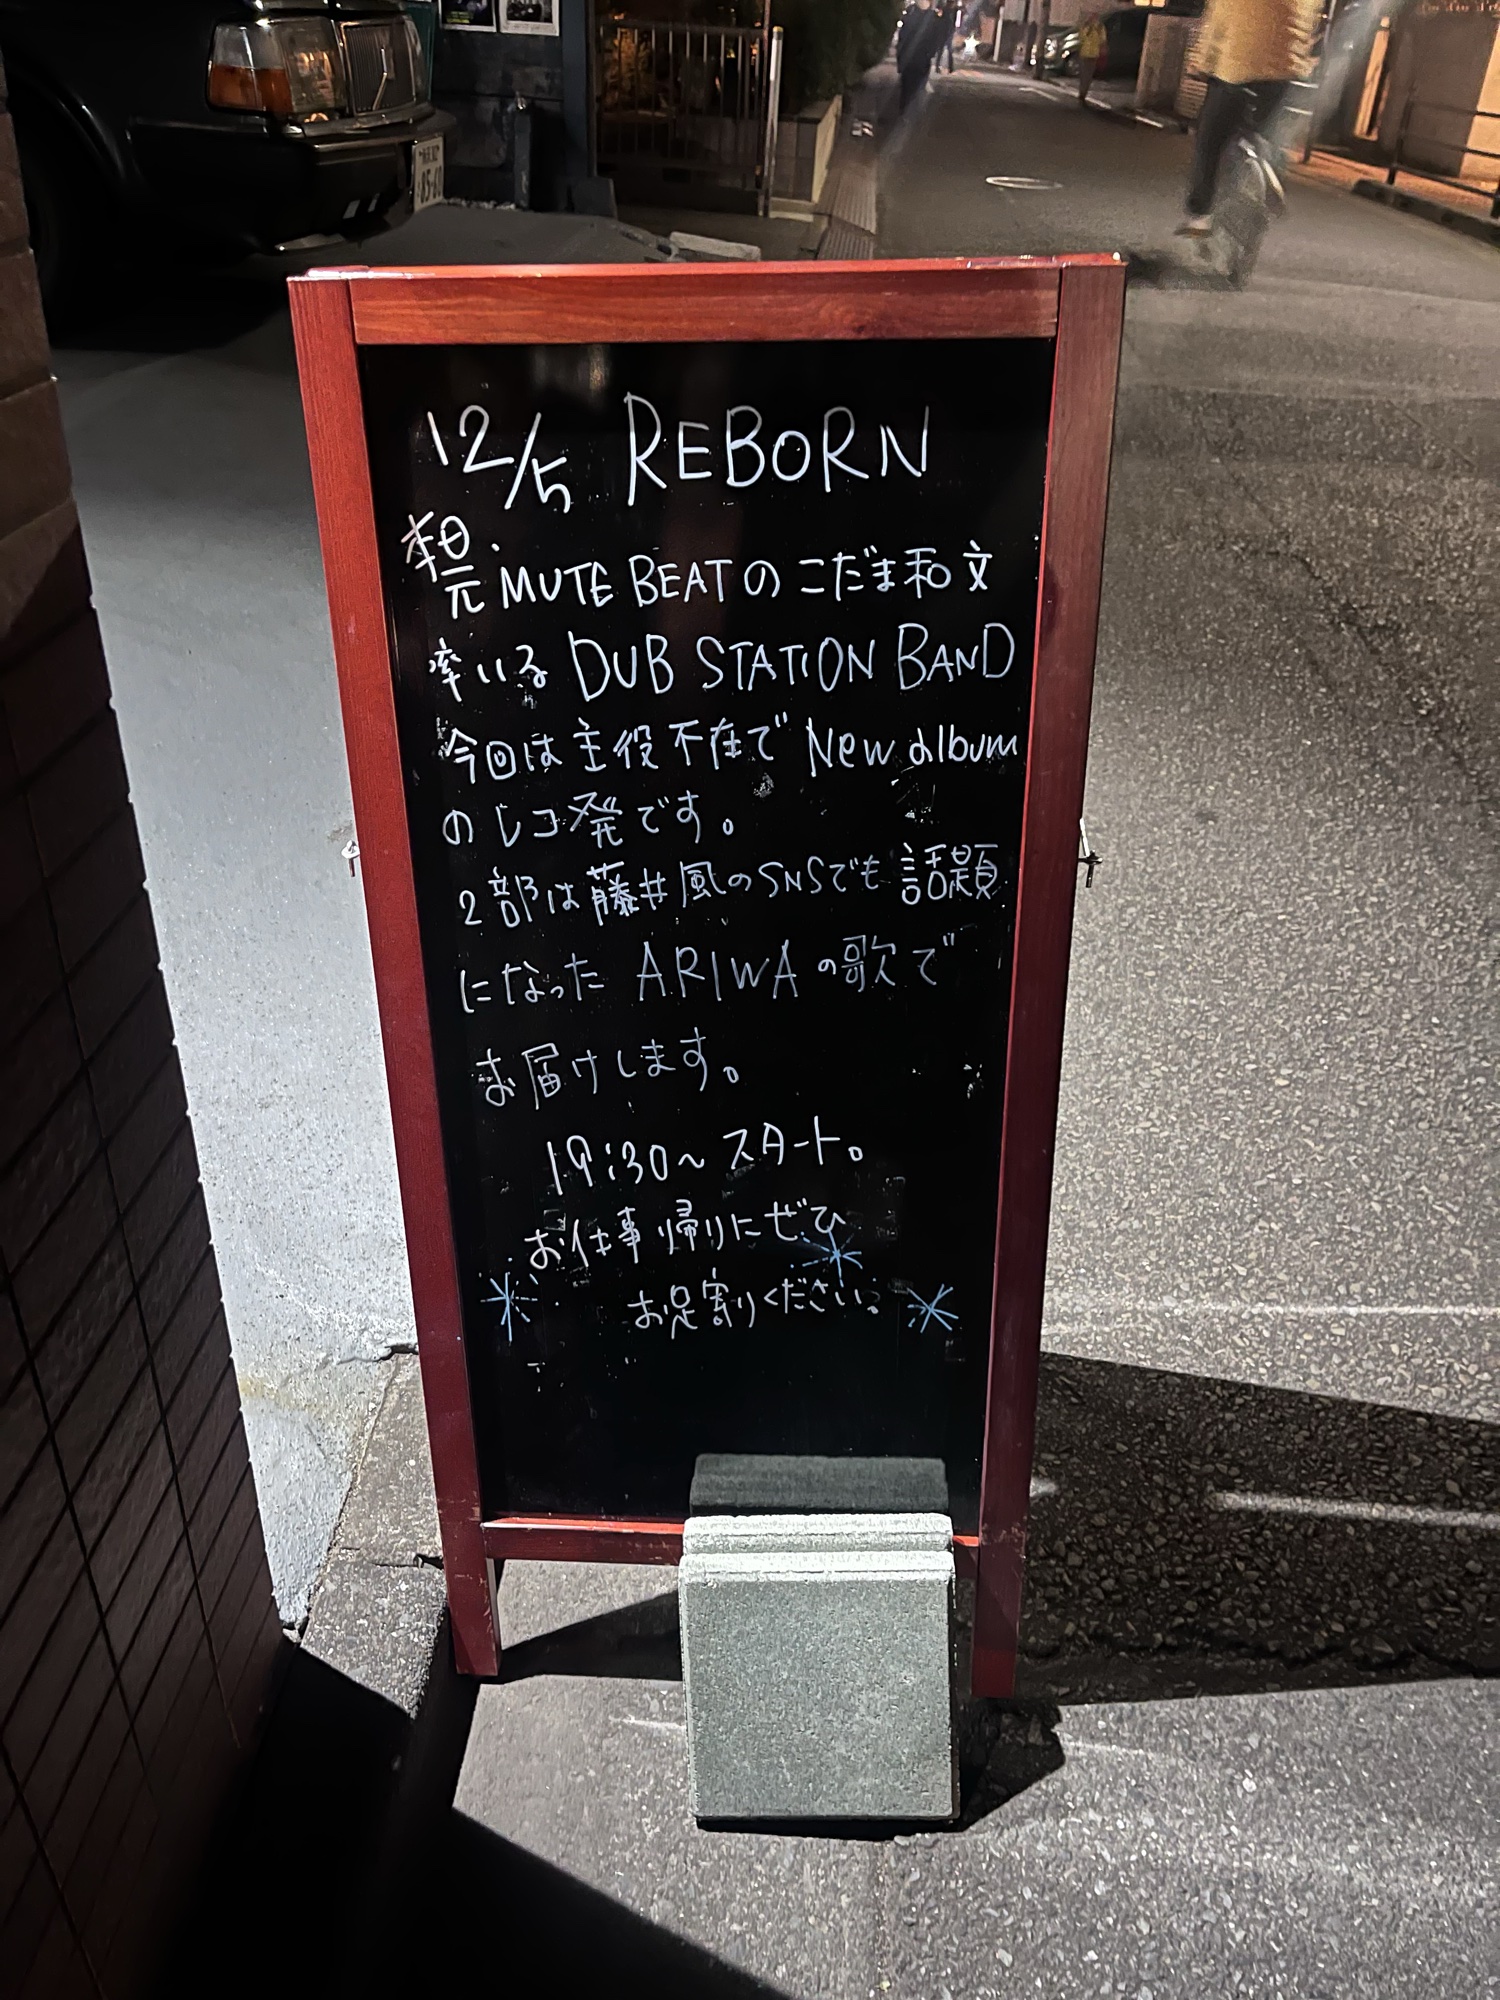 12/5 REBORN
本日
元. MUTE BEATの こだま和文
率いる DUB STATION BAND
今回は主役不在で New album
のレコ発です。
2部は藤井風のSNSでも話題
になった ARIWAの歌で
お届けします。
19:30〜スタート。
お仕事帰りにぜひ
お足割りください。